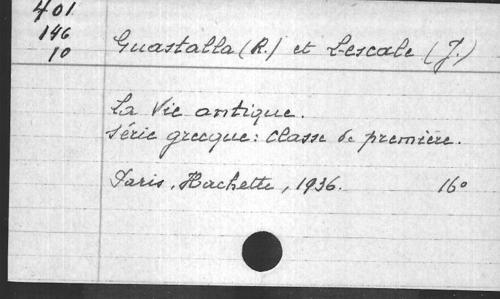 401
146
10
Guastalla (R.) et Lescale (J.)
La Vie antique.
Série grecque: Classe de première.
Paris, Hachette, 1936. 16°